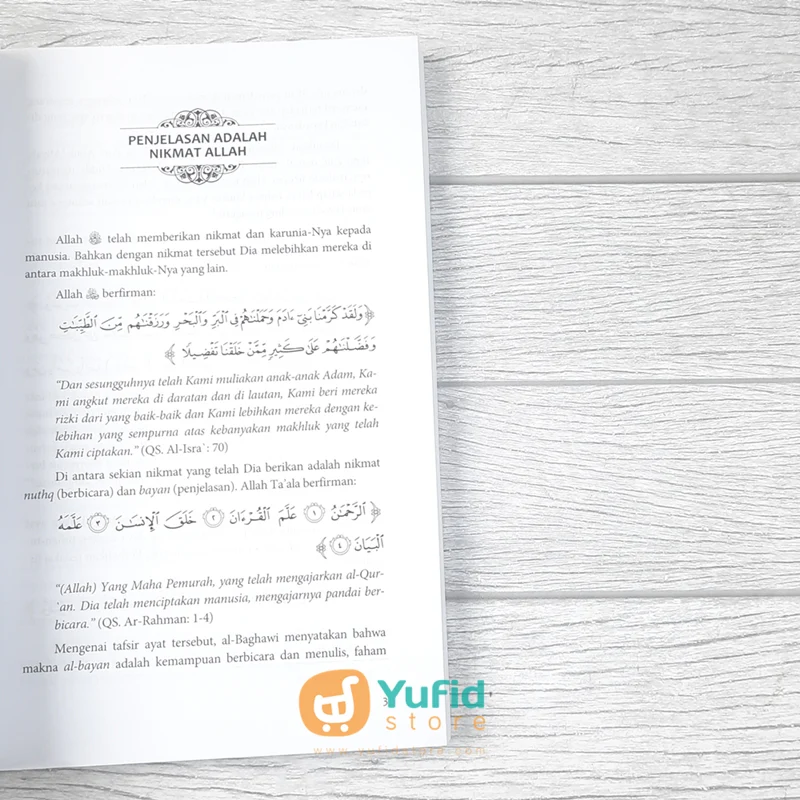 PENJELASAN ADALAH
NIKMAT ALLAH
Allah ﷻ telah memberikan nikmat dan karunia-Nya kepada
manusia. Bahkan dengan nikmat tersebut Dia melebihkan mereka di
antara makhluk-makhluk-Nya yang lain.
Allah ﷻ berfirman:
﴿ وَلَقَدْ كَرَّمْنَا بَنِىٓ ءَادَمَ وَحَمَلْنَٰهُمْ فِى ٱلْبَرِّ وَٱلْبَحْرِ وَرَزَقْنَٰهُم مِّنَ ٱلطَّيِّبَٰتِ
وَفَضَّلْنَٰهُمْ عَلَىٰ كَثِيرٍ مِّمَّنْ خَلَقْنَا تَفْضِيلًا ﴾
“Dan sesungguhnya telah Kami muliakan anak-anak Adam, Ka-
mi angkut mereka di daratan dan di lautan, Kami beri mereka
rizki dari yang baik-baik dan Kami lebihkan mereka dengan ke-
lebihan yang sempurna atas kebanyakan makhluk yang telah
Kami ciptakan.” (QS. Al-Isra`: 70)
Di antara sekian nikmat yang telah Dia berikan adalah nikmat
nuthq (berbicara) dan bayan (penjelasan). Allah Ta'ala berfirman:
﴿ ٱلرَّحْمَٰنُ ١ عَلَّمَ ٱلْقُرْءَانَ ٢ خَلَقَ ٱلْإِنسَٰنَ ٣ عَلَّمَهُ
ٱلْبَيَانَ ٤ ﴾
“(Allah) Yang Maha Pemurah, yang telah mengajarkan al-Qur-
`an. Dia telah menciptakan manusia, mengajarnya pandai ber-
bicara.” (QS. Ar-Rahman: 1-4)
Mengenai tafsir ayat tersebut, al-Baghawi menyatakan bahwa
makna al-bayan adalah kemampuan berbicara dan menulis, faham
Yufid
store